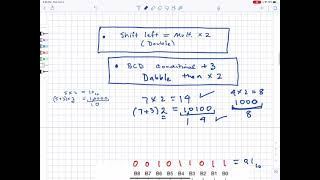 • Shift left = Mult x 2
(Double)
• BCD conditional + 3
Dabble then x 2
5 x 2 = 10₁₀
(5+3)x2 = 1,0000
10
7 x 2 = 14 ✓
(7+3) 2 = 1,0100
1 4 ✓
4 x 2 = 8
1000
8
0 0 1 0 1 1 0 1 1 = 91₁₀
B8 B7 B6 B5 B4 B3 B2 B1 B0